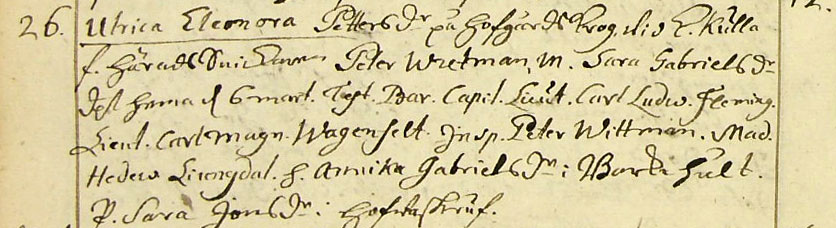 26. Ulrica Eleonora Petters Dr på Hofgårds Krog vid L. Kulla
f. Härads Snickaren Peter Wretman, M. Sara Gabriels Dr
Dpt hema d 6 mart. Test. Bar. Capit. Lieut. Carl Ludw. Fleming.
Lieut. Carl Magn. Wagenfelt. Insp. Peter Wittman. Mad.
Hedew Liungdal. h. Annika Gabriels Dr i Norra hult.
P. Sara Jons Dr i